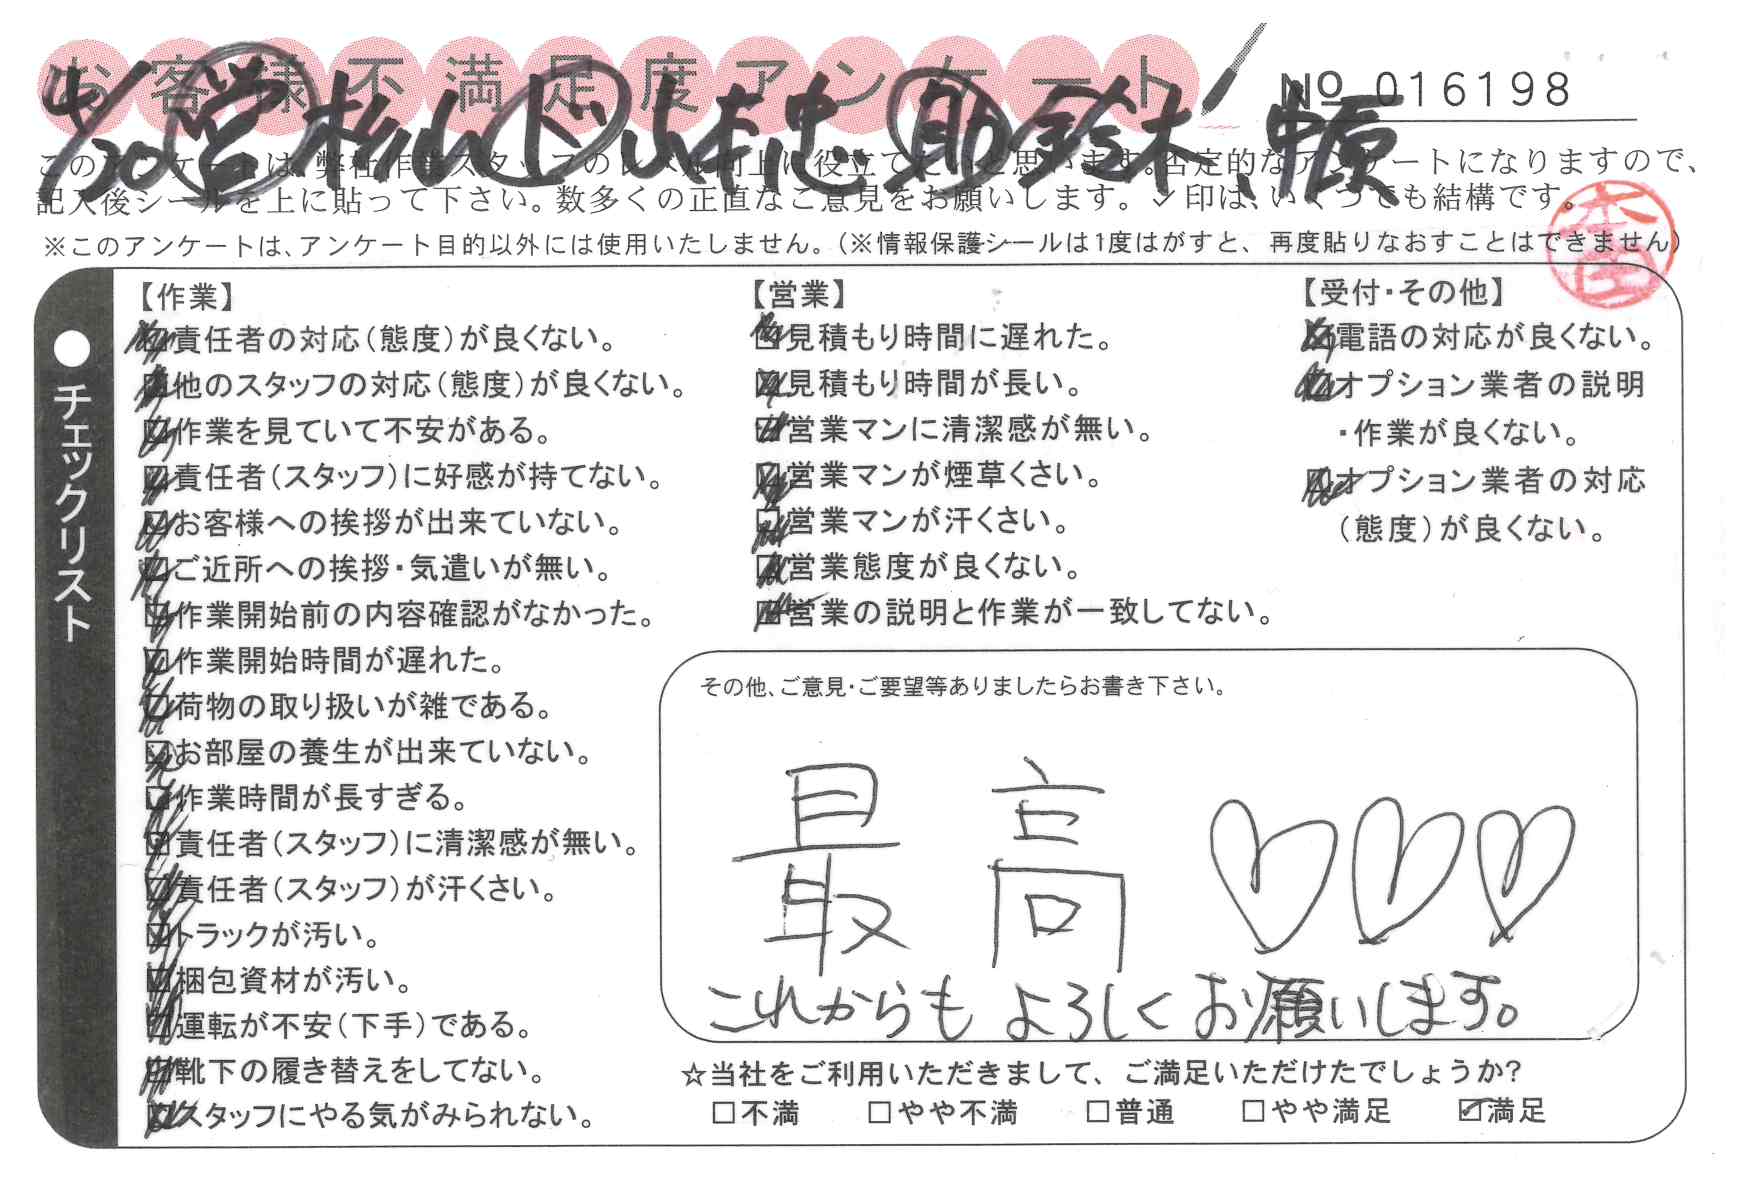 お客様不満足度アンケート
№ 016198
4/20 営 杉山 ド 山本忠 助 鈴木、中原
このアンケートは、弊社作業スタッフのレベル向上に役立てたいと思います。否定的なアンケートになりますので、
記入後シールを上に貼って下さい。数多くの正直なご意見をお願いします。✓印は、いくつでも結構です。
※このアンケートは、アンケート目的以外には使用いたしません。(※情報保護シールは1度はがすと、再度貼りなおすことはできません)
●チェックリスト
【作業】
□責任者の対応(態度)が良くない。
□他のスタッフの対応(態度)が良くない。
□作業を見ていて不安がある。
□責任者(スタッフ)に好感が持てない。
□お客様への挨拶が出来ていない。
□ご近所への挨拶・気遣いが無い。
□作業開始前の内容確認がなかった。
□作業開始時間が遅れた。
□荷物の取り扱いが雑である。
□お部屋の養生が出来ていない。
□作業時間が長すぎる。
□責任者(スタッフ)に清潔感が無い。
□責任者(スタッフ)が汗くさい。
□トラックが汚い。
□梱包資材が汚い。
□運転が不安(下手)である。
□靴下の履き替えをしてない。
□スタッフにやる気がみられない。
【営業】
□見積もり時間に遅れた。
□見積もり時間が長い。
□営業マンに清潔感が無い。
□営業マンが煙草くさい。
□営業マンが汗くさい。
□営業態度が良くない。
□営業の説明と作業が一致してない。
【受付・その他】
□電話の対応が良くない。
□オプション業者の説明
・作業が良くない。
□オプション業者の対応
(態度)が良くない。
その他、ご意見・ご要望等ありましたらお書き下さい。
最高♡♡♡
これからもよろしくお願いします。
☆当社をご利用いただきまして、ご満足いただけたでしょうか?
□不満 □やや不満 □普通 □やや満足 ☑満足